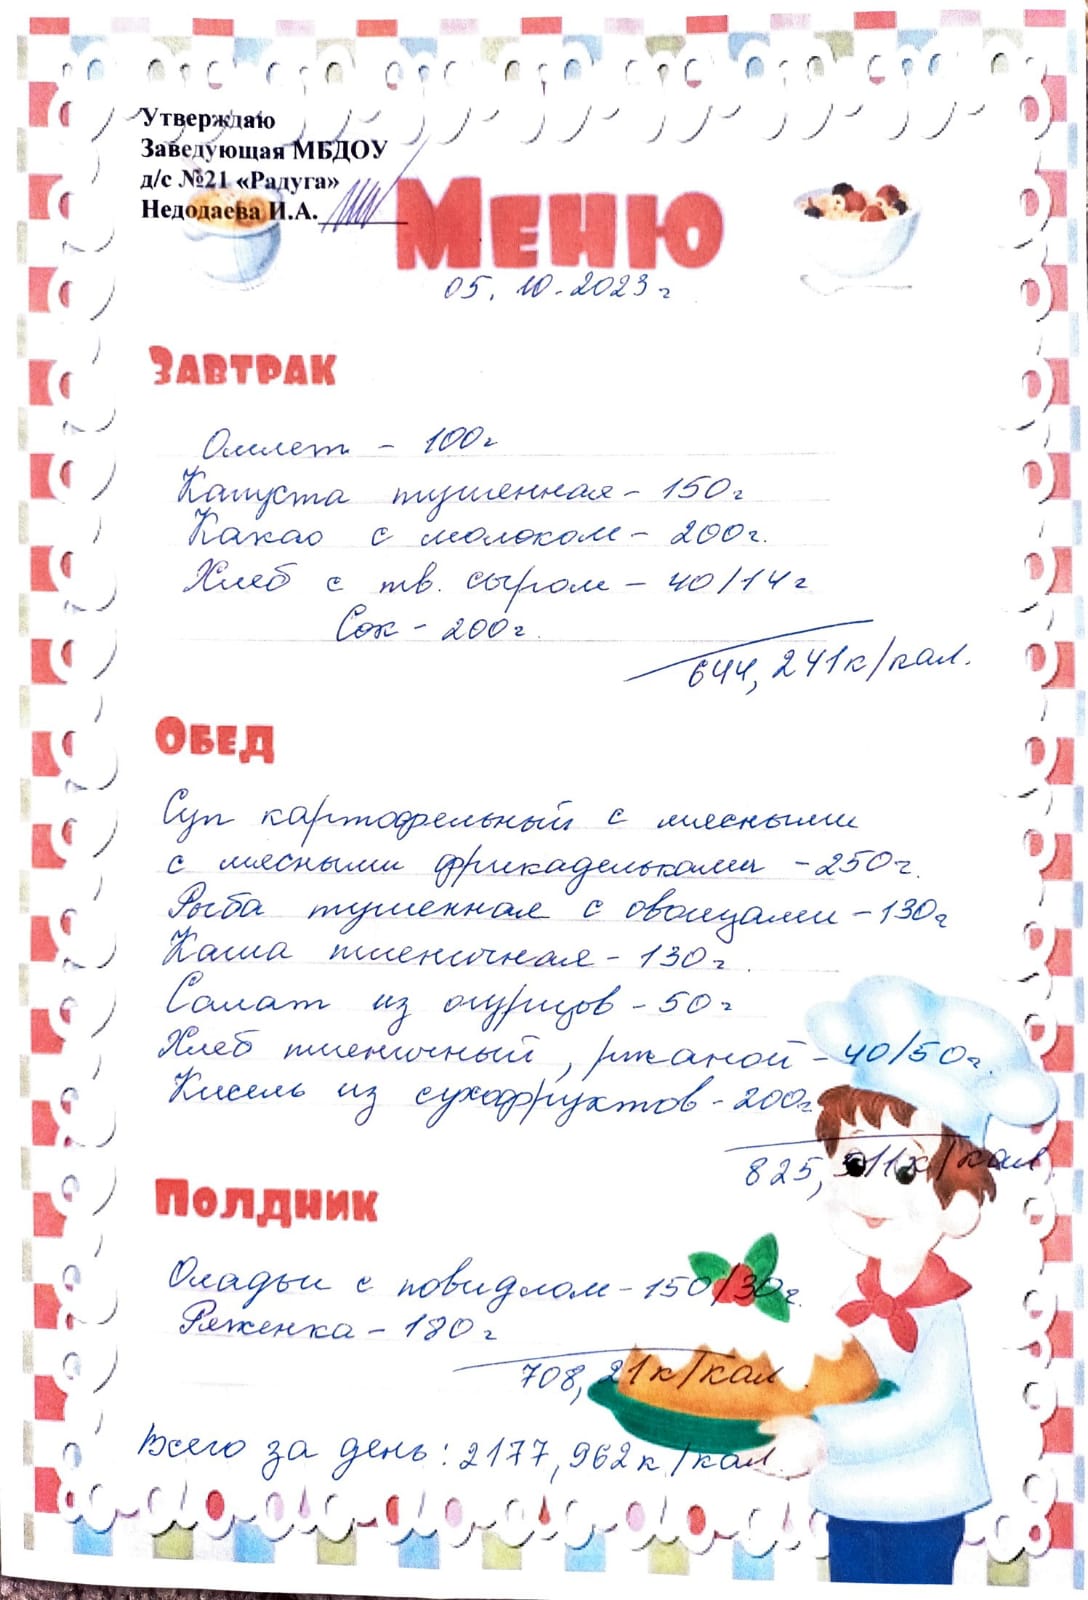 Утверждаю
Заведующая МБДОУ
д/с №21 «Радуга»
Недодаева И.А.
Меню
05.10.2023г
Завтрак
Омлет - 100г
Капуста тушенная - 150г
Какао с молоком - 200г.
Хлеб с тв. сыром - 40/14г
Сок - 200г.
644,241к/кал.
Обед
Суп картофельный с мясными
с мясными фрикадельками - 250г.
Рыба тушенная с овощами - 130г
Каша пшеничная - 130г.
Салат из огурцов - 50г
Хлеб пшеничный, ржаной - 40/50г.
Кисель из сухофруктов - 200г.
825,511к/кал
Полдник
Оладьи с повидлом - 150/30г.
Ряженка - 180г
708,21к/кал.
Всего за день: 2177,962к/кал.